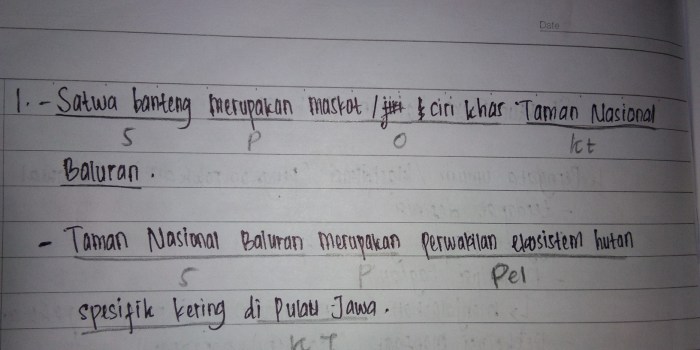 Date
1. - Satwa banteng merupakan maskot / & ciri khas Taman Nasional
S P O kt
Baluran.
- Taman Nasional Baluran merupakan perwakilan ekosistem hutan
S P Pel
spesifik kering di Pulau Jawa.
KT